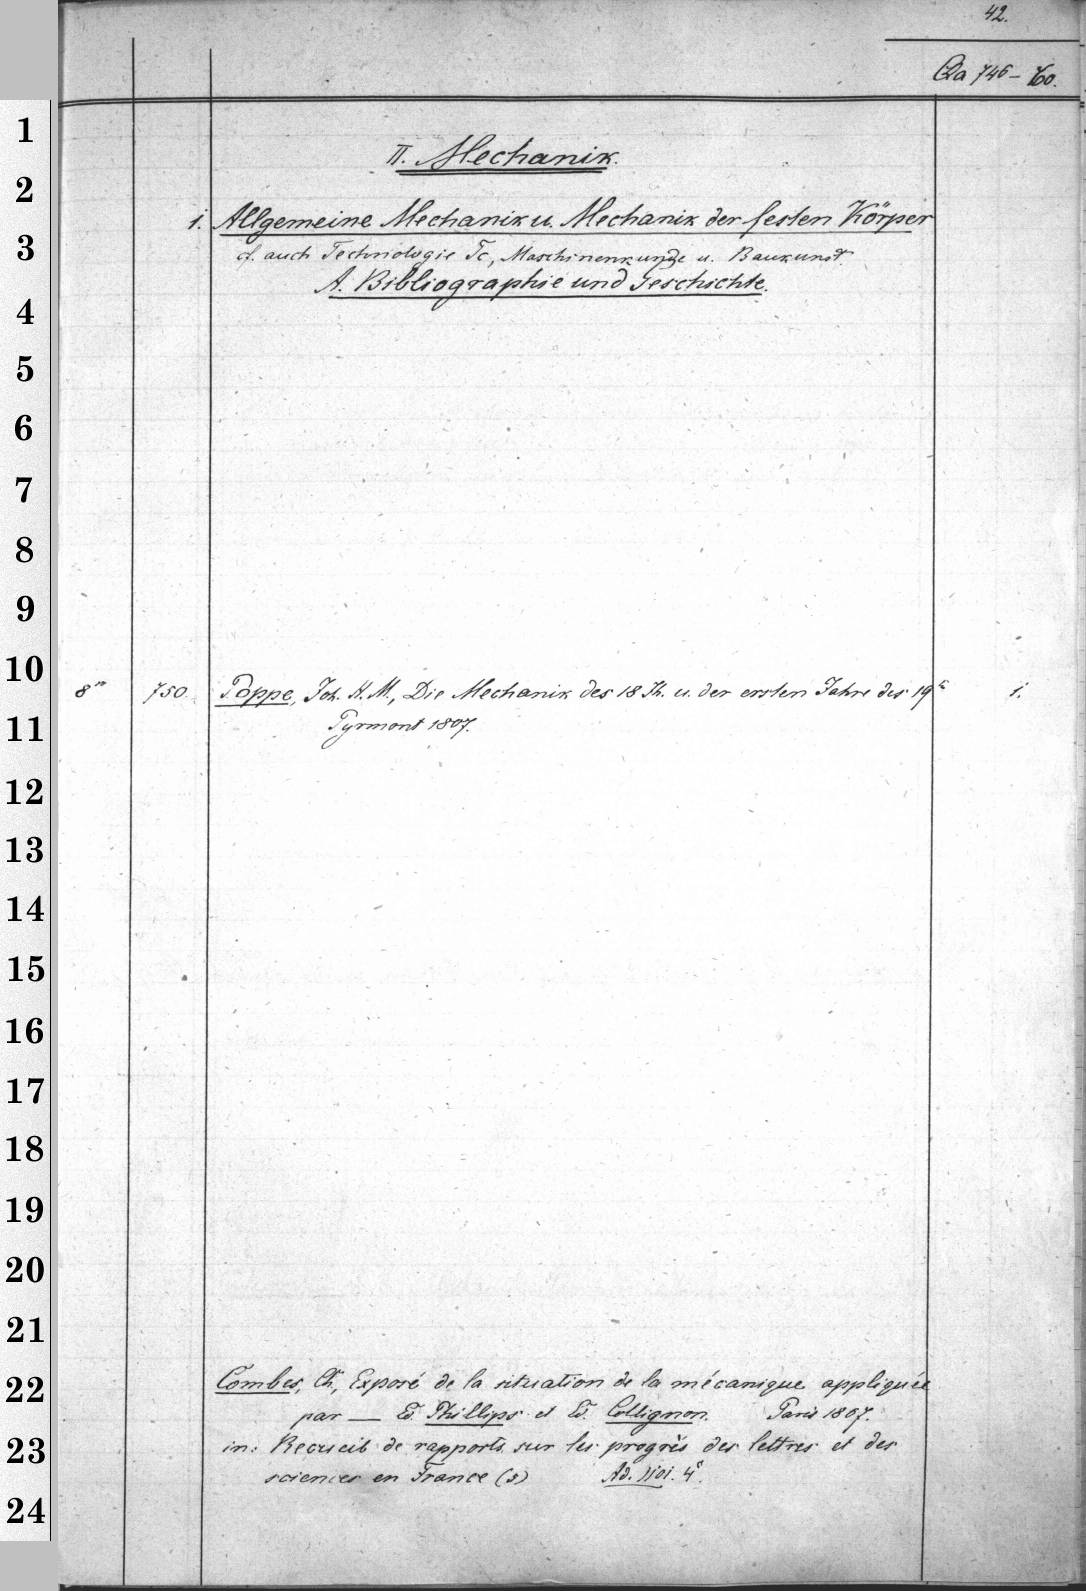 42.
Qa 746-60.
II. Mechanik.
1. Allgemeine Mechanik u. Mechanik der festen Körper
cf. auch Technologie Tc, Maschinenkunde u. Baukunst
A. Bibliographie und Geschichte.
8vo 750. Poppe, Joh. H. M., Die Mechanik des 18 Jh. u. der ersten Jahre des 19t 1.
Pyrmont 1807.
Combes, Ch, Exposé de la situation de la mécanique appliquée
par — Ed. Phillips et Ed. Collignon. Paris 1867.
in: Recueil de rapports sur les progrès des lettres et des
sciences en France (s) Ad. 4°.
1
2
3
4
5
6
7
8
9
10
11
12
13
14
15
16
17
18
19
20
21
22
23
24